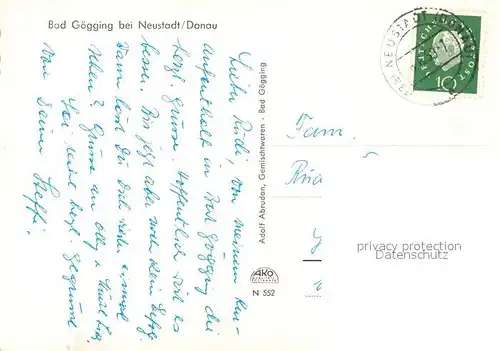 Bad Gögging bei Neustadt/Donau
Lieber Rudi, von meinem Kur-
aufenthalt in Bad Gögging die
herzl. Grüsse. Hoffentlich wird es
besser. Bis jetzt aber noch kein Erfolg.
Wann lässt Du Dich wieder einmal
sehen? Grüsse an Olly &
Sei recht herzl. gegrüsst
von Deiner Steffi.
Adolf Abrudan, Gemischtwaren - Bad Gögging
AKO
N 552
NEUSTADT
DEUTSCHE BUNDESPOST
10
Fam.
privacy protection
Datenschutz